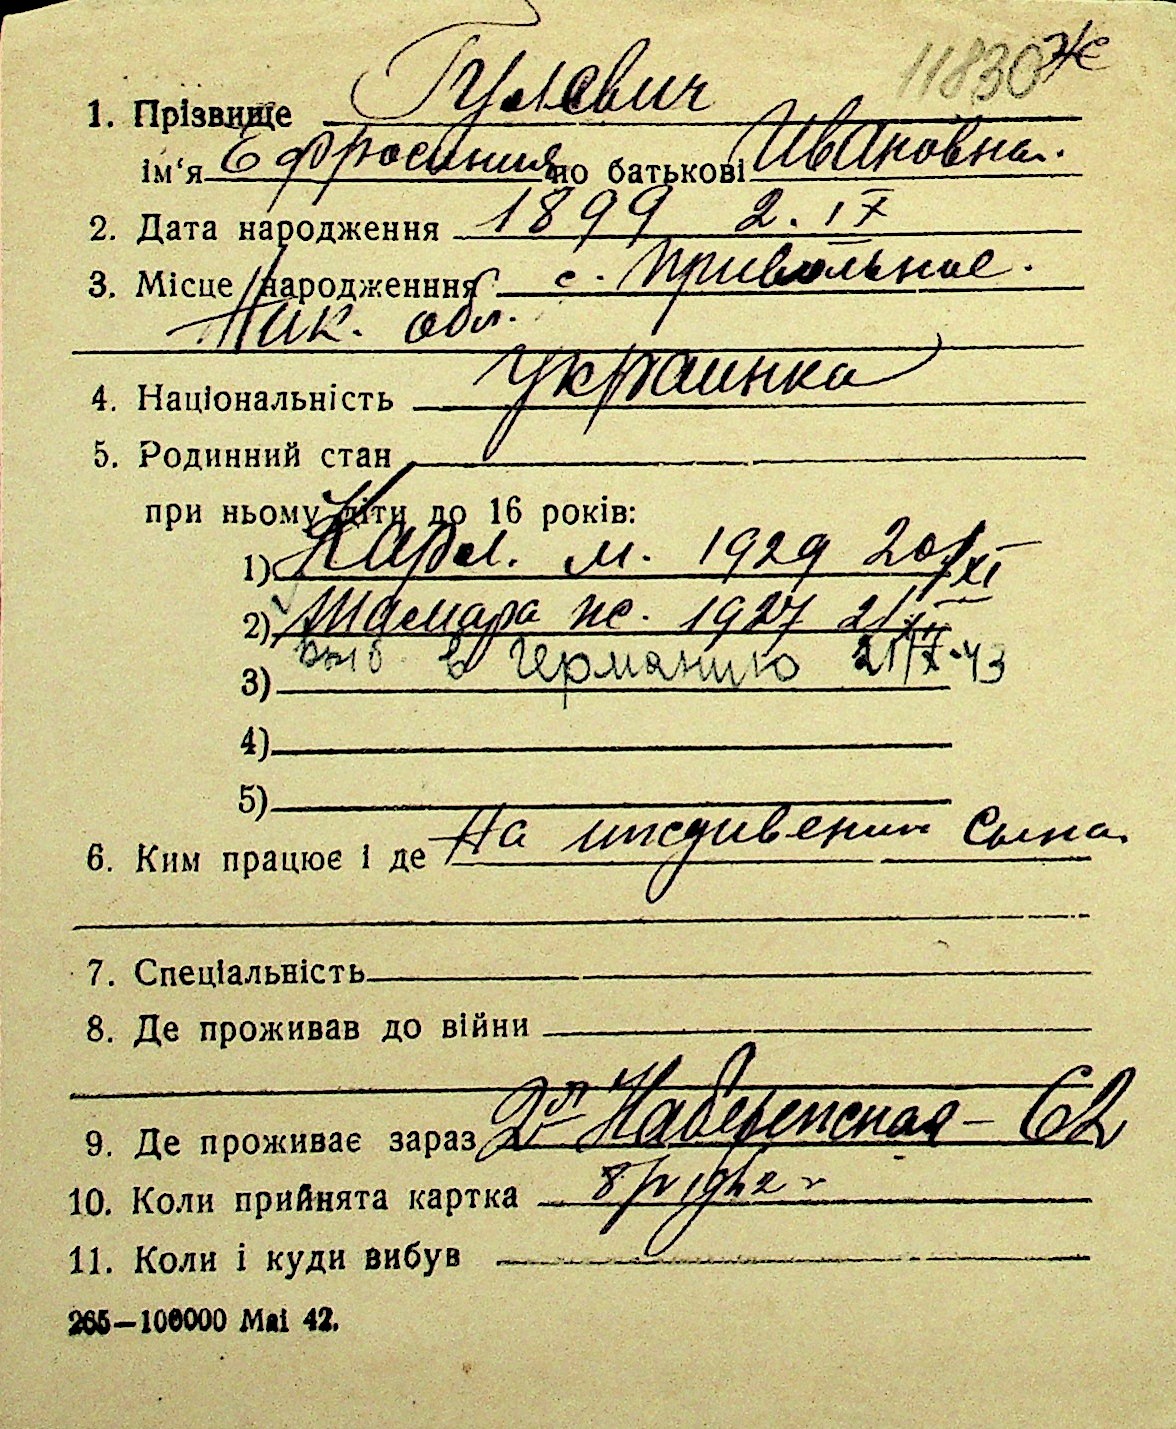 11830 ж
1. Прізвище Гулевич
ім‘я Ефросиния по батькові Ивановна.
2. Дата народження 1899 2. IX
3. Місце народженння с. Привольное.
Ник. обл.
4. Національність Украинка
5. Родинний стан
при ньому діти до 16 років:
1) Карл. м. 1929 20/XI
2) Тамара ж. 1927
3) выб в Германию 21/X-43
4)
5)
6. Ким працює і де На иждивении сына.
7. Спеціальність
8. Де проживав до війни
9. Де проживає зараз 2ая Набережная – 62
10. Коли прийнята картка
11. Коли і куди вибув
265—100000 Маі 42.